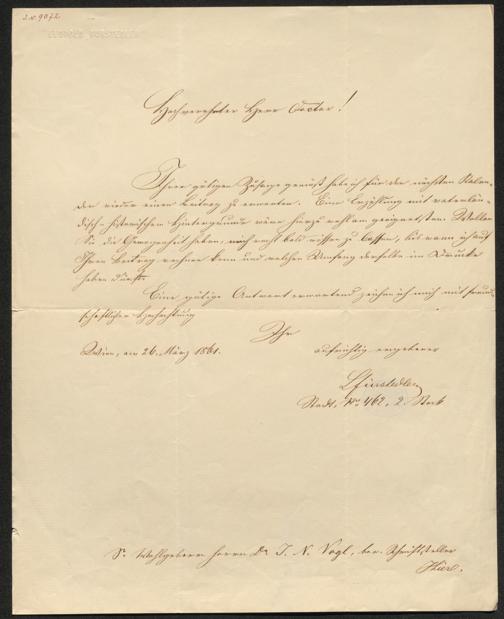 I.N. 9072
Hochverehrter Herr Doctor!
Ihrer gütigen Zusage gemäß habe ich für den nächsten Kalen-
der wieder einen Beitrag zu erwarten. Eine Erzählung mit vaterlän-
disch-historischem Hintergrunde wäre hiezu wohl am geeignetsten. Wollen
Sie die Gewogenheit haben, mich recht bald wissen zu lassen, bis wann ich auf
Ihren Beitrag rechnen kann und welchen Umfang derselbe im Drucke
haben dürfte.
Eine gütige Antwort erwartend zeichne ich mich mit freund-
schaftlicher Hochachtung
Ihr
Wien, am 26. März 1861.
aufrichtig ergebener
Stadt, No 462, 2. Stock
Sr Wohlgeboren Herrn Dr J. N. Vogl, Schriftsteller
Hier.